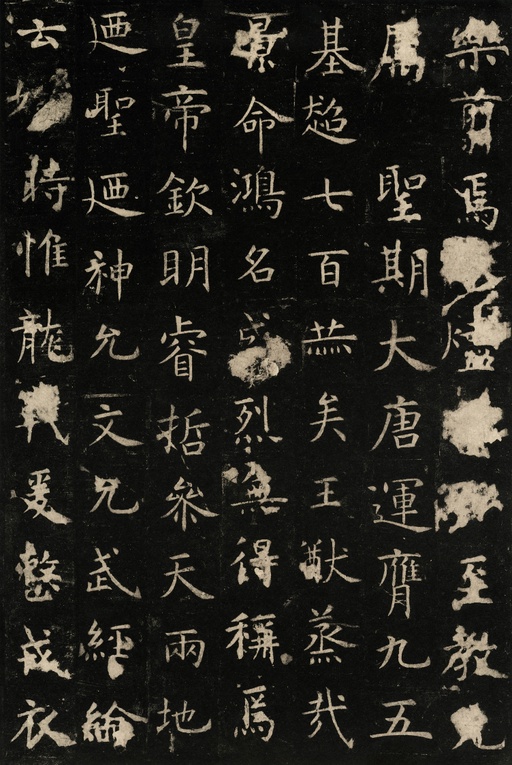 樂翦焉燼至教允
屬 聖期大唐運膺九五
基超七百赫矣王猷蒸哉
景命鴻名盛烈無得稱焉
皇帝欽明睿哲參天兩地
迺聖迺神允文允武經綸
云始時惟龍戰爰整戎衣